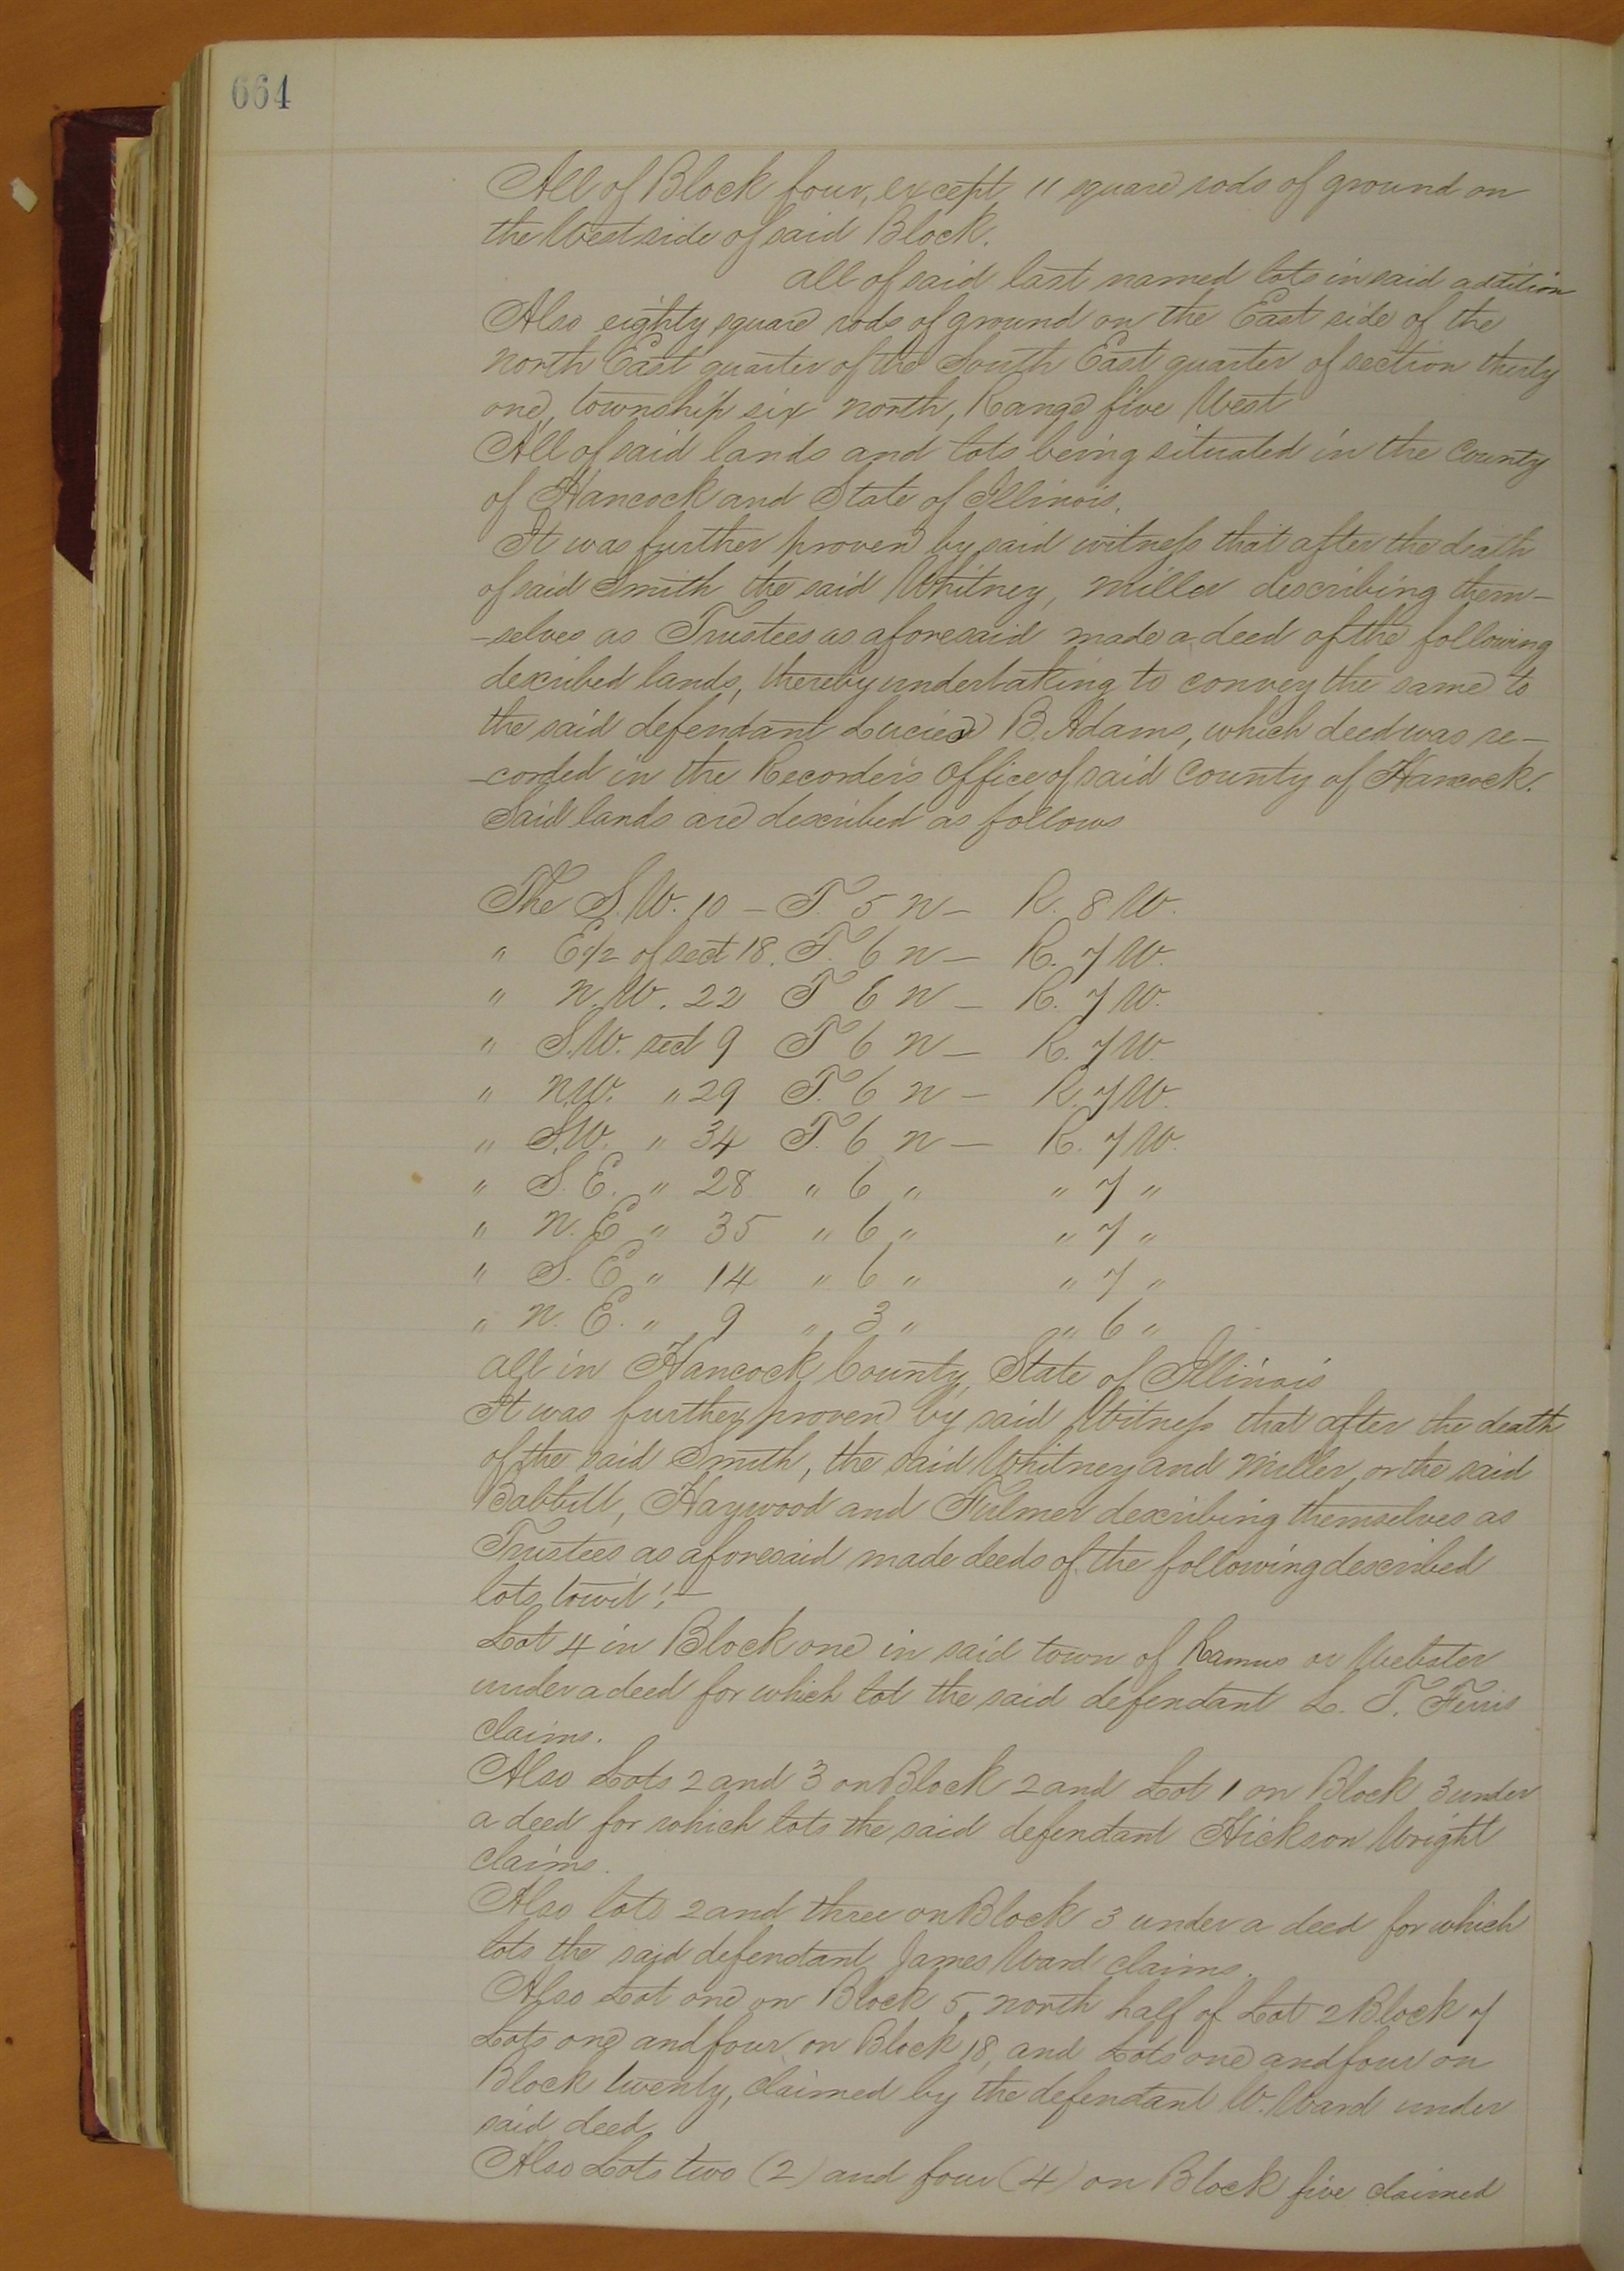 664
All of Block four, except 11 square rods of ground on
the West side of said Block.
all of said last named lots in said addition
Also eighty square rods of ground on the East side of the
north East quarter of the South East quarter of section thirty
one, township six north, Range five West
All of said lands and lots being situated in the County
of Hancock and State of Illinois.
It was further proven by said witness that after the death
of said Smith the said Whitney, Miller describing them-
-selves as Trustees as aforesaid made a deed of the following
described lands, thereby undertaking to convey the same to
the said defendant Lucien B. Adams, which deed was re-
-corded in the Recorder's Office of said County of Hancock.
Said lands are described as follows
The S.W. 10 - T. 5 N - R. 8 W.
" E 1/2 of sect 18. T. 6 N - R. 7 W.
" N.W. 22 T 6 N - R. 7 W.
" S.W. sect 9 T 6 N - R. 7 W.
" N.W. " 29 T. 6 N - R. 7 W.
" S.W. " 34 T. 6 N - R. 7 W.
" S. E. " 28 " 6 " " 7 "
" N. E " 35 " 6 " " 7 "
" S. E " 14 " 6 " " 7 "
" N. E. " 9 " 3 " " 6 "
all in Hancock County, State of Illinois
It was further proven by said Witness that after the death
of the said Smith, the said Whitney and Miller, or the said
Babbitt, Haywood and Fulmer describing themselves as
Trustees as aforesaid made deeds of the following described
lots, towit:-
Lot 4 in Block one in said town of Ramus or Webster
under a deed for which lot the said defendant L. T. Ferris
claims.
Also Lots 2 and 3 on Block 2 and Lot 1 on Block 3 under
a deed for which lots the said defendant Hickson Wright
claims.
Also lots 2 and three on Block 3 under a deed for which
lots the said defendant James Ward claims.
Also Lot one on Block 5, north half of Lot 2 Block 7
Lots one and four on Block 18, and Lots one and four on
Block twenty, claimed by the defendant W. Ward under
said deed
Also Lots two (2) and four (4) on Block five claimed